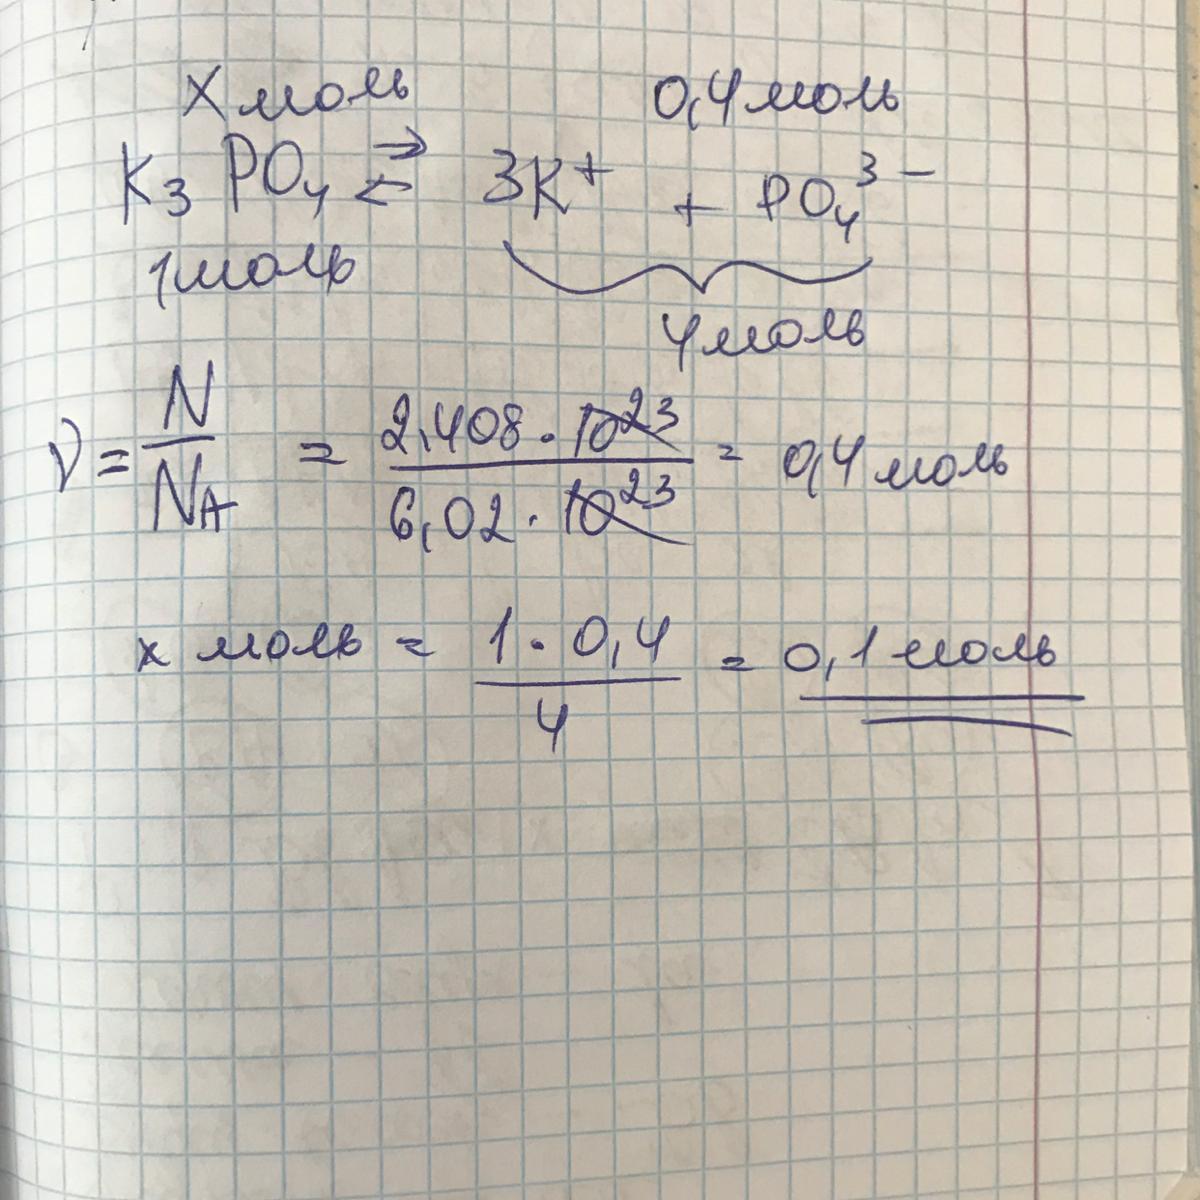 X моль 0,4 моль
K3 PO4 ⇄ 3K+ + PO4 3−
1 моль
4 моль
ν = N/NA = 2,408 · 10^23 / 6,02 · 10^23 = 0,4 моль
x моль = 1 · 0,4 / 4 = 0,1 моль